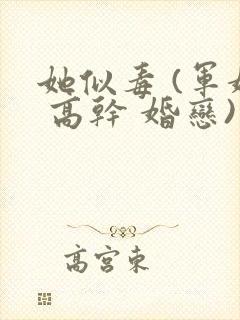 她似毒(軍婚
高幹 婚戀)
高宮東